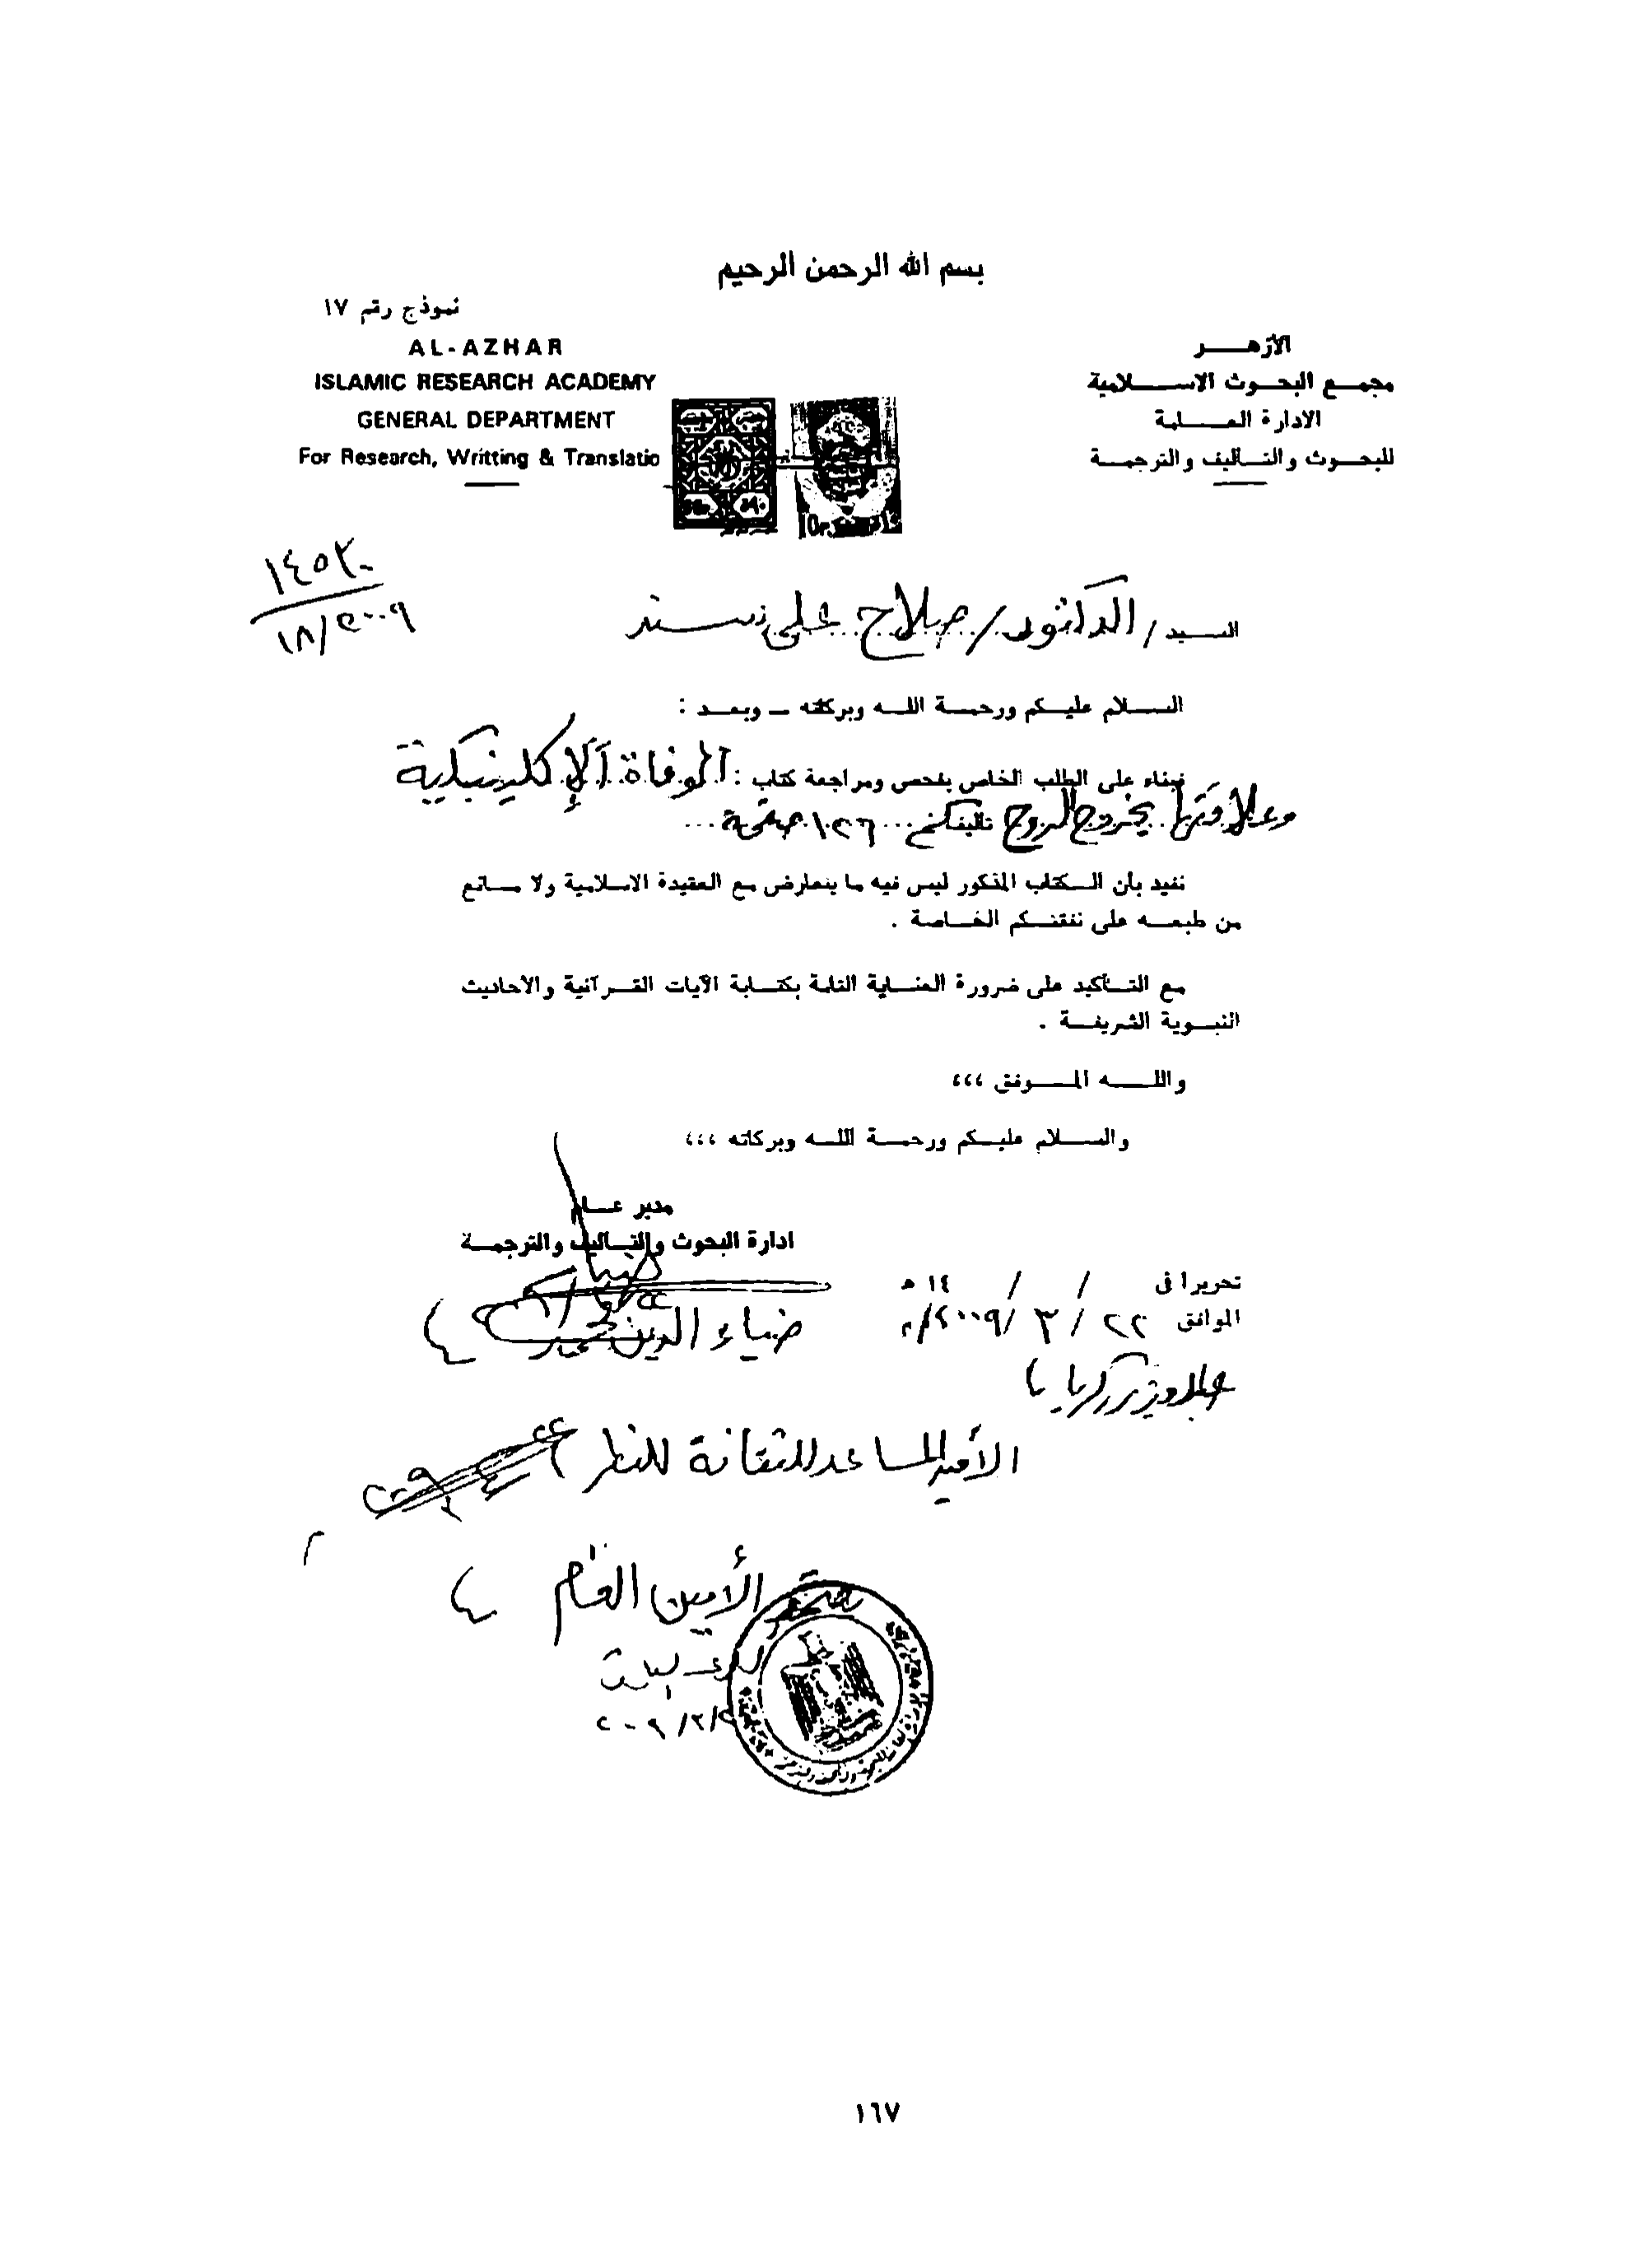 بسم الله الرحمن الرحيم
نموذج رقم ١٧
AL-AZHAR
ISLAMIC RESEARCH ACADEMY
GENERAL DEPARTMENT
For Research, Writting & Translatio
الأزهـــر
مجمـع البحـوث الاســـلامية
الادارة العـــامة
للبحـوث والتـأليف والترجمـة
١٨/٢٠٠٩
السـيد / الدكتور / صلاح على سند
الســلام عليـكم ورحمـة اللـه وبركاته ــ وبعـد :
فبناء على الطلب الخاص بفحص ومراجعة كتاب : الوفاة الإكلينيكية
وعلاقتها بخروج الروح تأليفكم ... ١٢٦ صفحة ...
نفيد بأن الـكتاب المذكور ليس فيه ما يتعارض مع العقيدة الاسلامية ولا مـانع
من طبعـه على نفقتـكم الخـاصة .
مع التـأكيد على ضرورة العنـاية التامة بكتـابة الآيات القـرآنية والأحاديث
النبـوية الشريفـة .
واللـــه المـــوفق ،،،
والســلام عليـكم ورحمـة اللـه وبركاته ،،،
مدير عــام
ادارة البحوث والتـأليف والترجمـة
تحريرا فى / / ١٤ هـ
الموافق ٢٢ / ٣ / ٢٠٠٩ م
ضياء الدين
الأمين المساعد للثقافة للنظر
الأمين العام
١٦٧